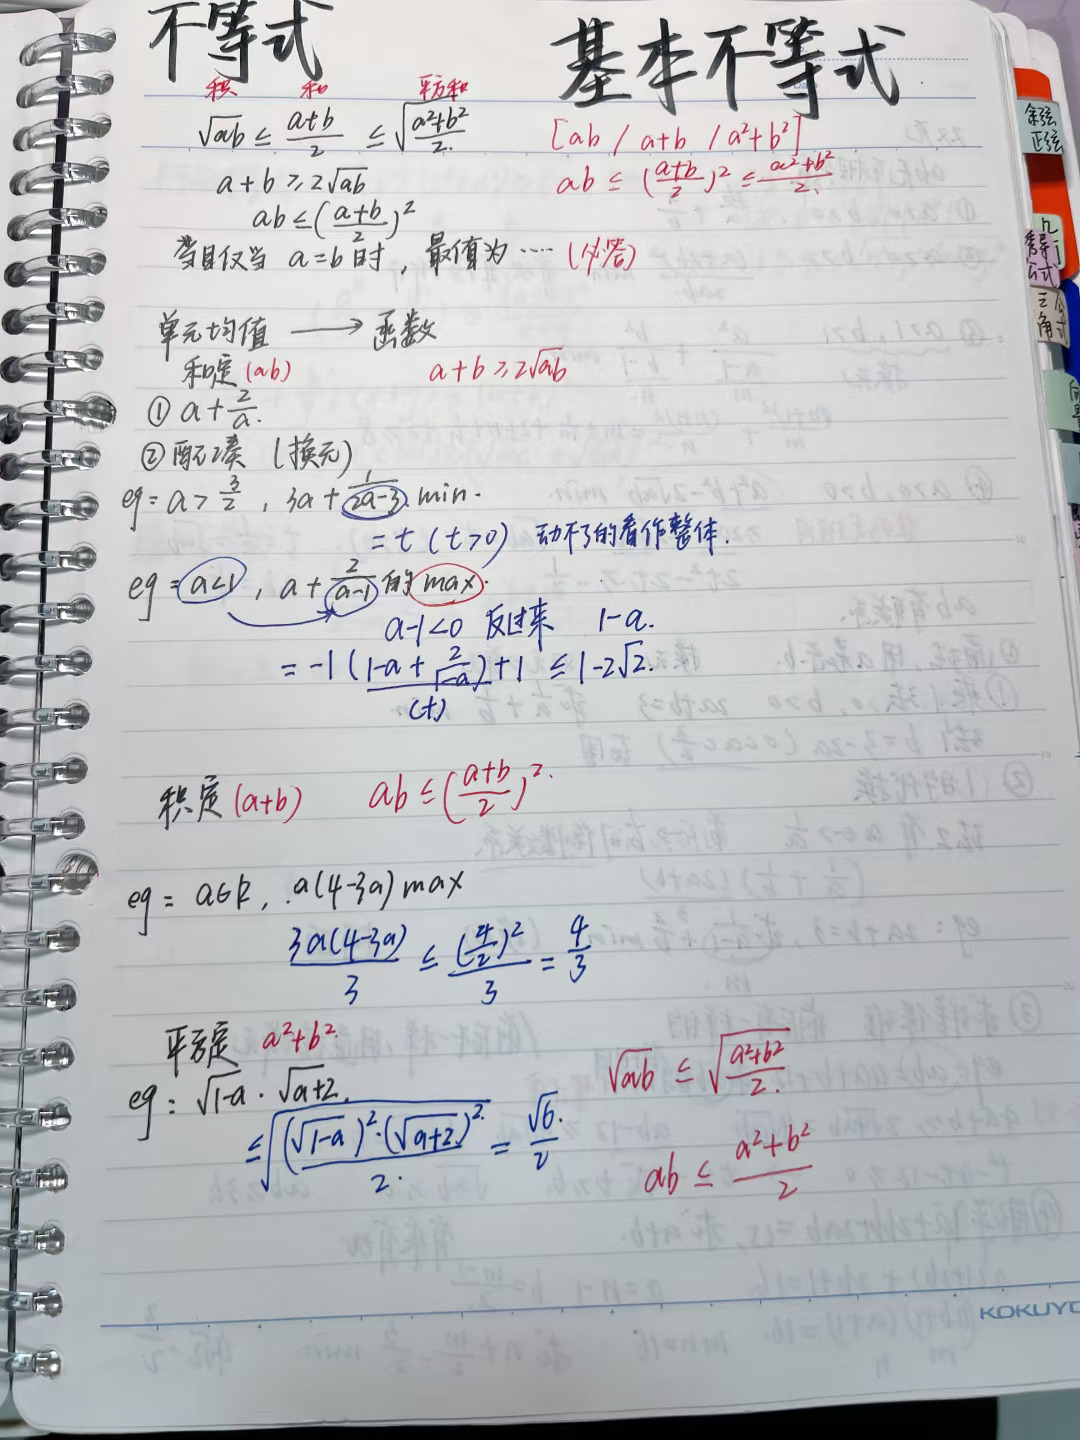 不等式
基本不等式
积 和 平方和
√ab ≤ (a+b)/2 ≤ √((a²+b²)/2)
[ab / a+b / a²+b²]
a+b ≥ 2√ab
ab ≤ ((a+b)/2)² ≤ (a²+b²)/2
ab ≤ ((a+b)/2)²
当且仅当 a=b 时, 最值为 …… (必答)
单元均值 → 函数
和定 (ab) a+b ≥ 2√ab
① a + 2/a.
② 配凑 (换元)
eg = a > 3/2 , 3a + 1/(2a-3) min.
= t (t>0) 动不了的看作整体.
eg = a<1 , a + 2/(a-1) 的 max.
a-1<0 反过来 1-a.
= -1 (1-a + 2/(1-a)) + 1 ≤ 1-2√2.
(t)
积定 (a+b) ab ≤ ((a+b)/2)².
eg = a∈R, a(4-3a) max
3a(4-3a)/3 ≤ (4/2)²/3 = 4/3
平方定 a²+b².
√ab ≤ √((a²+b²)/2)
eg: √(1-a) · √(a+2).
≤ √(((√(1-a))²·(√(a+2))²)/2) = √6/2
ab ≤ (a²+b²)/2
KOKUYO
余弦
正弦
诱导
公式
三角
公式